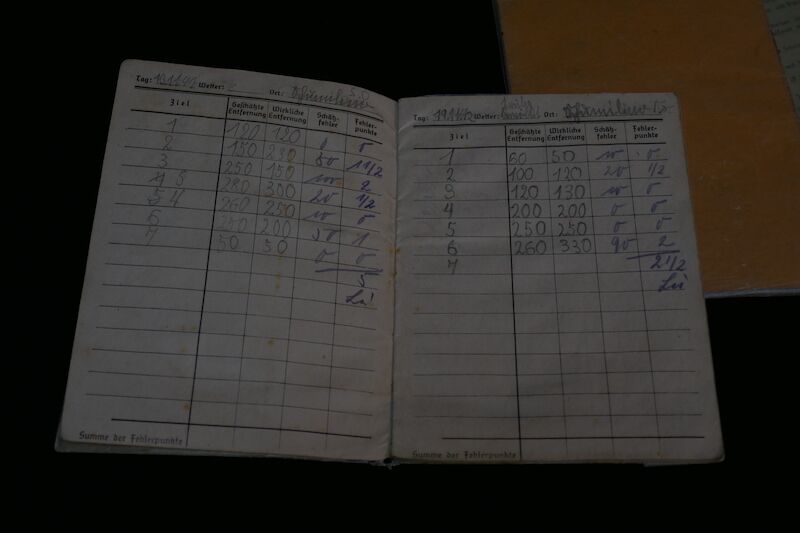 Tag: Wetter: Ort:
Ziel Geschätzte Entfernung Wirkliche Entfernung Schätz-fehler Fehler-punkte
1 120 120 0 0
2 150 230
3 250 150 50 1 1/2
4 5 280 300 100 2
5 4 260 250 20 1/2
6 200 10 0
7 50 50 50 1
0 0
5
Lü
Summe der Fehlerpunkte
Tag: Wetter: Ort:
Ziel Geschätzte Entfernung Wirkliche Entfernung Schätz-fehler Fehler-punkte
1 60 50 10 0
2 100 120 20 1/2
3 120 130 10 0
4 200 200 0 0
5 250 250 0 0
6 260 330 90 2
7 2 1/2
Lü
Summe der Fehlerpunkte